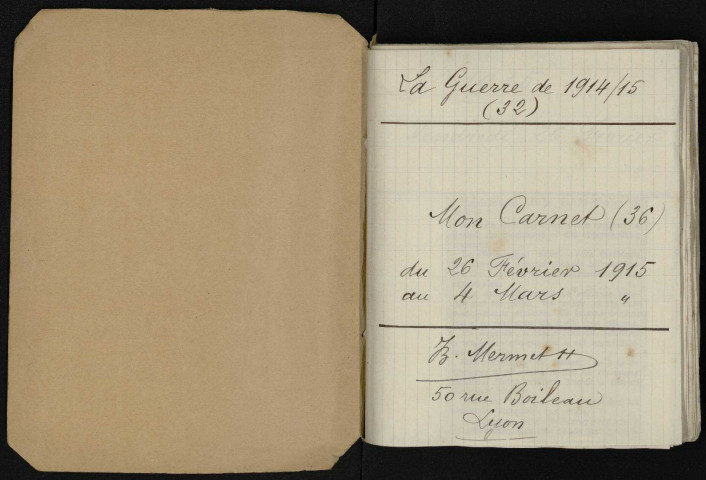 La Guerre de 1914/15
(32)
Mon Carnet (36)
du 26 Février 1915
au 4 Mars "
B. Mermet
50 rue Boileau
Lyon